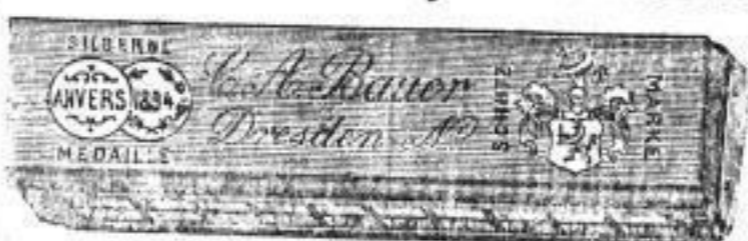 SILBERNE
ANVERS 1894
MEDAILLE
C. A. Bauer
Dresden N
SCHUTZ
MARKE